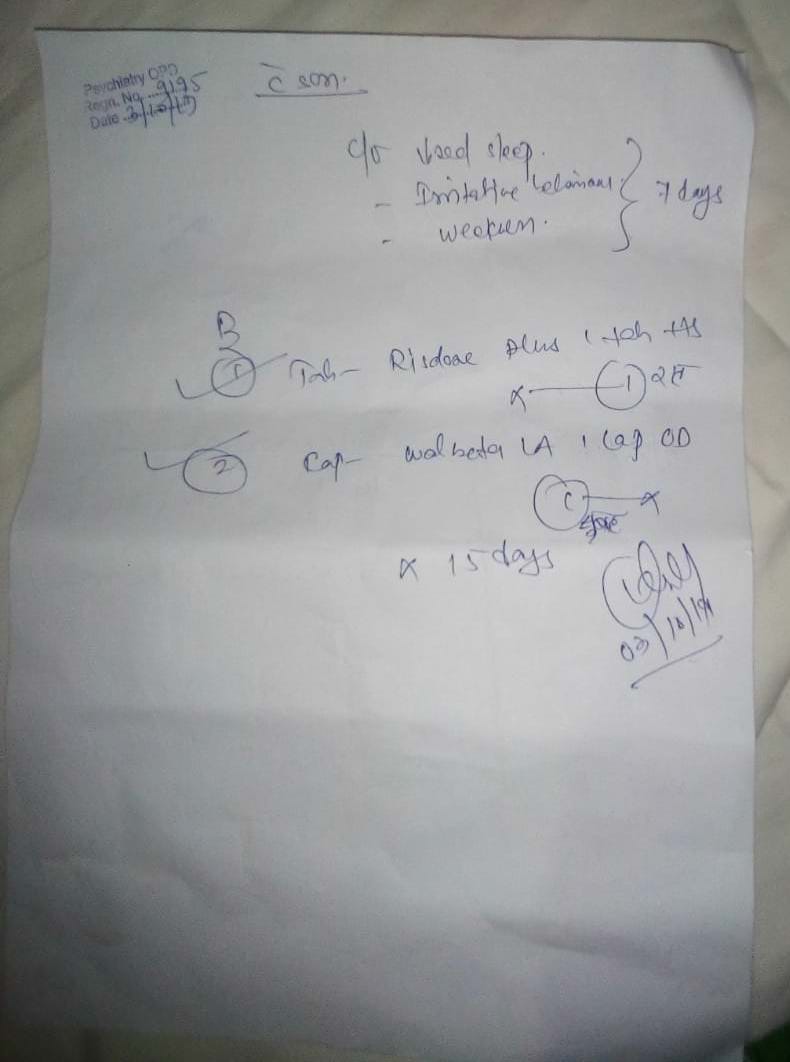 Psychiatry OPD
Regn. No. 9195
Date 3/10/19
c̄ son.
c/o ↓sed sleep.
- Irritative behaviour } 7 days
- weakness.
① Tab- Risdone Plus 1 tab HS
x — ①
② Cap- walbeta LA 1 Cap OD
— x
x 15 days
03/10/19